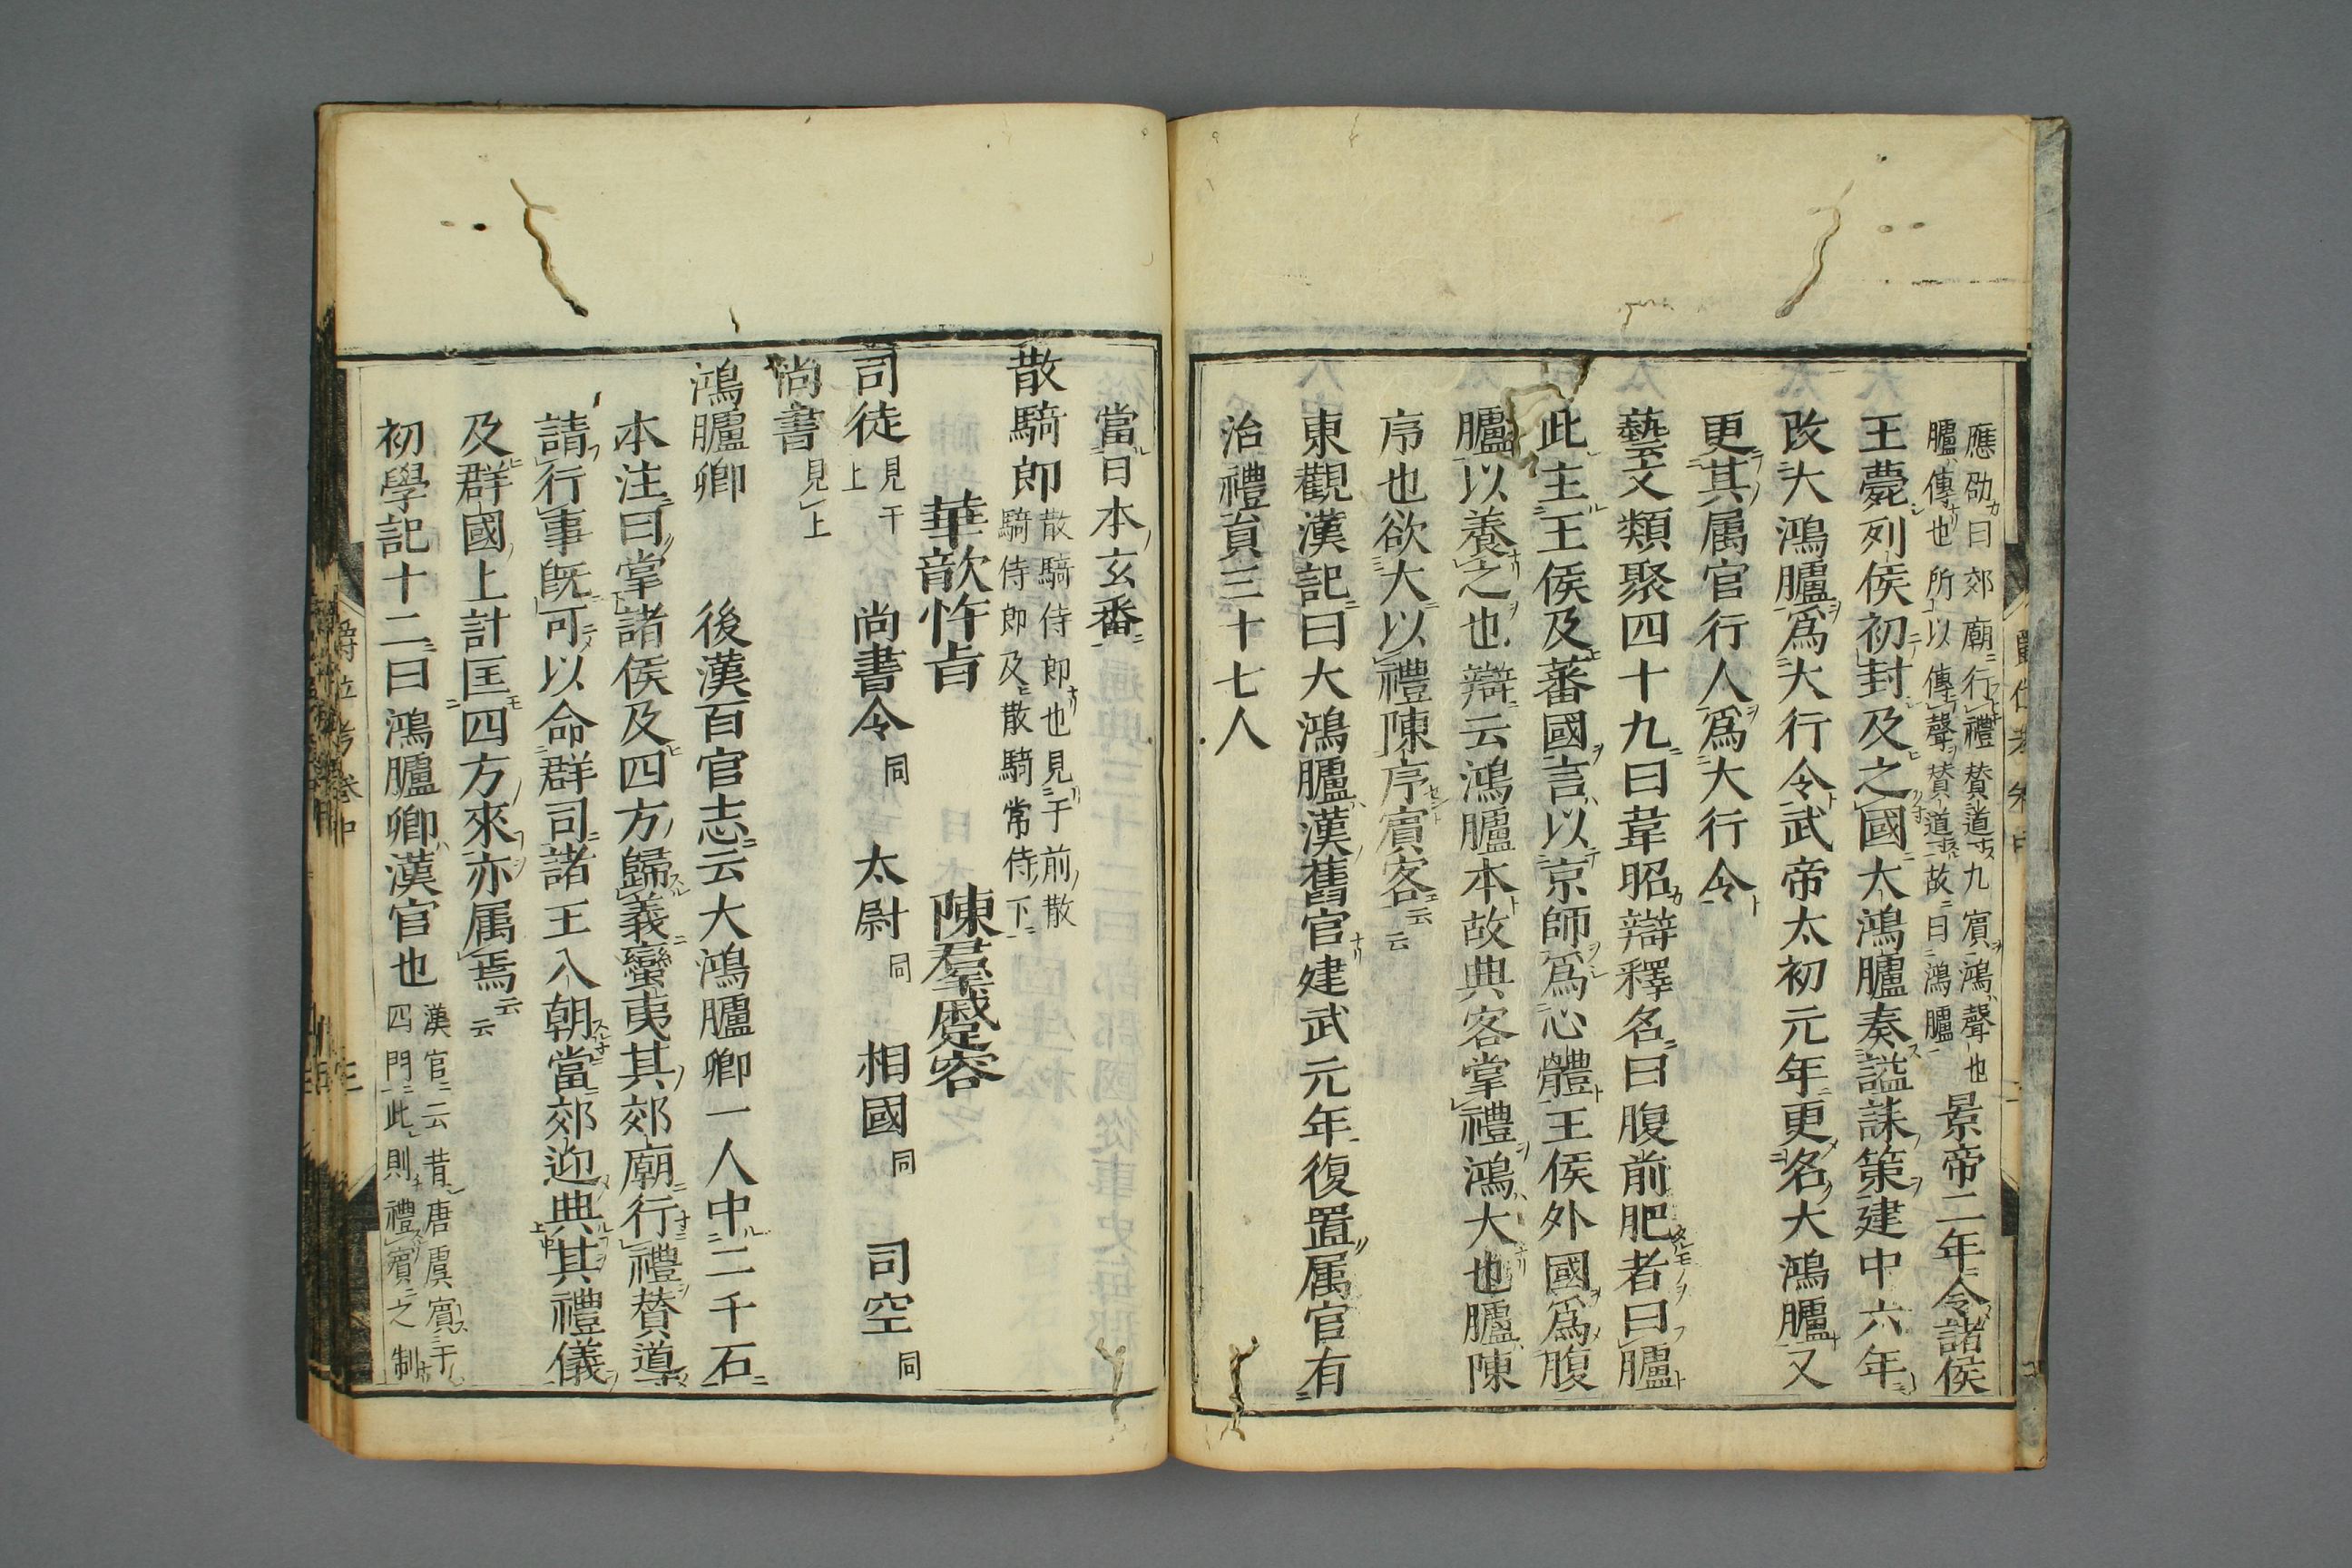 應劭曰郊廟行禮賛導九賓鴻聲也
臚傳也所以傳聲賛導故曰鴻臚
景帝二年令諸侯
王薨列侯初封及之國大鴻臚奏謚誄策建中六年
改大鴻臚爲大行令武帝太初元年更名大鴻臚又
更其属官行人爲大行令
藝文類聚四十九曰韋昭辯釋名曰腹前肥者曰臚
此主王侯及蕃國言以京師爲心體王侯外國爲腹
臚以養之也辯云鴻臚本故典客掌禮鴻大也臚陳
序也欲大以禮陳序賓客云云
東觀漢記曰大鴻臚漢舊官建武元年復置属官有
治禮員三十七人
當日本玄番
散騎郎
散騎侍郎也見于前散
騎侍郎及散騎常侍下
華歆忤旨 陳羣蹙容
司徒見于上 尚書令同 太尉同 相國同 司空同
尚書見上
鴻臚卿 後漢百官志云大鴻臚卿一人中二千石
本注曰掌諸侯及四方歸義蠻夷其郊廟行禮賛導
請行事旣可以命群司諸王入朝當郊迎典其禮儀
及群國上計匡四方來亦属焉云云
初學記十二曰鴻臚卿漢官也
漢官云昔唐虞賓于
四門此則禮賓之制
爵位考卷中